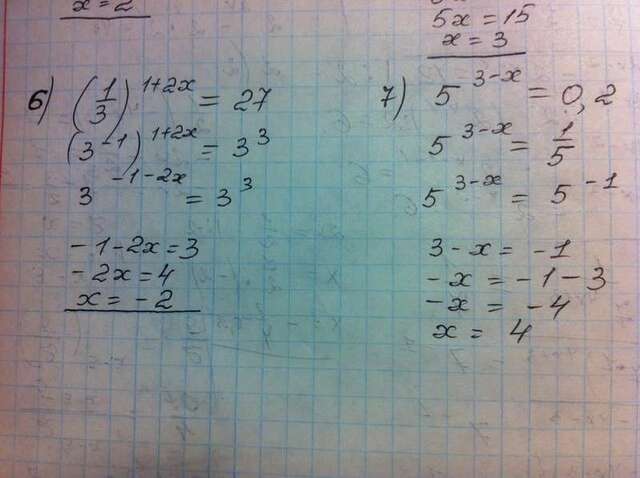 x = 2
5x = 15
x = 3
6) (1/3)^(1+2x) = 27
(3^(-1))^(1+2x) = 3^3
3^(-1-2x) = 3^3
-1-2x=3
-2x=4
x = -2
7) 5^(3-x) = 0,2
5^(3-x) = 1/5
5^(3-x) = 5^(-1)
3-x = -1
-x = -1-3
-x = -4
x = 4